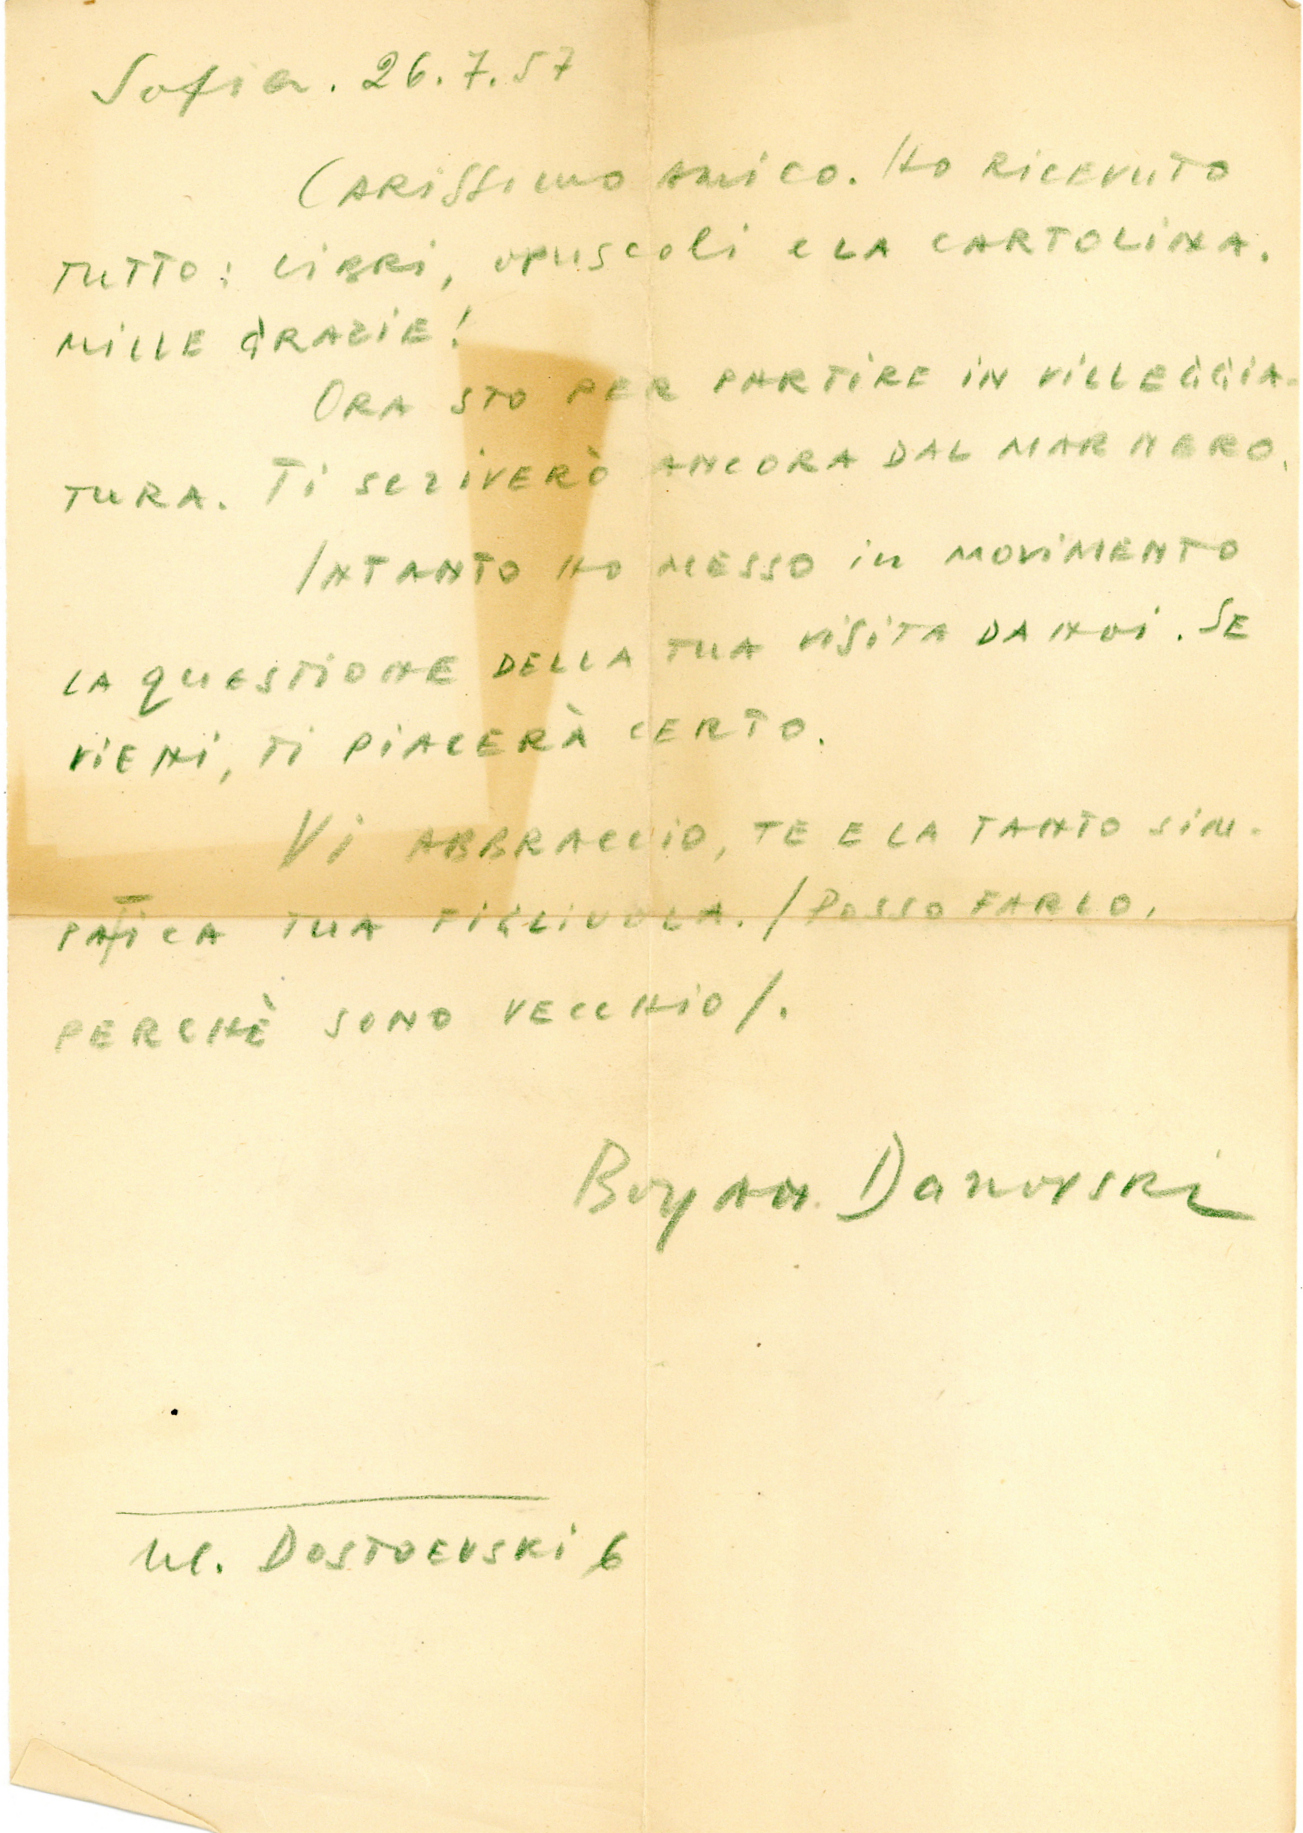 Sofia. 26.7.57
Carissimo amico. Ho ricevuto
tutto: libri, opuscoli e la cartolina.
Mille grazie!
Ora sto per partire in villeggia-
tura. Ti scriverò ancora dal Mar Nero.
Intanto ho messo in movimento
la questione della tua visita da noi. Se
vieni, ti piacerà certo.
Vi abbraccio, te e la tanto sim-
patica tua figliuola. /Posso farlo,
perchè sono vecchio/.
Boyan Danovski
ul. Dostoevski 6